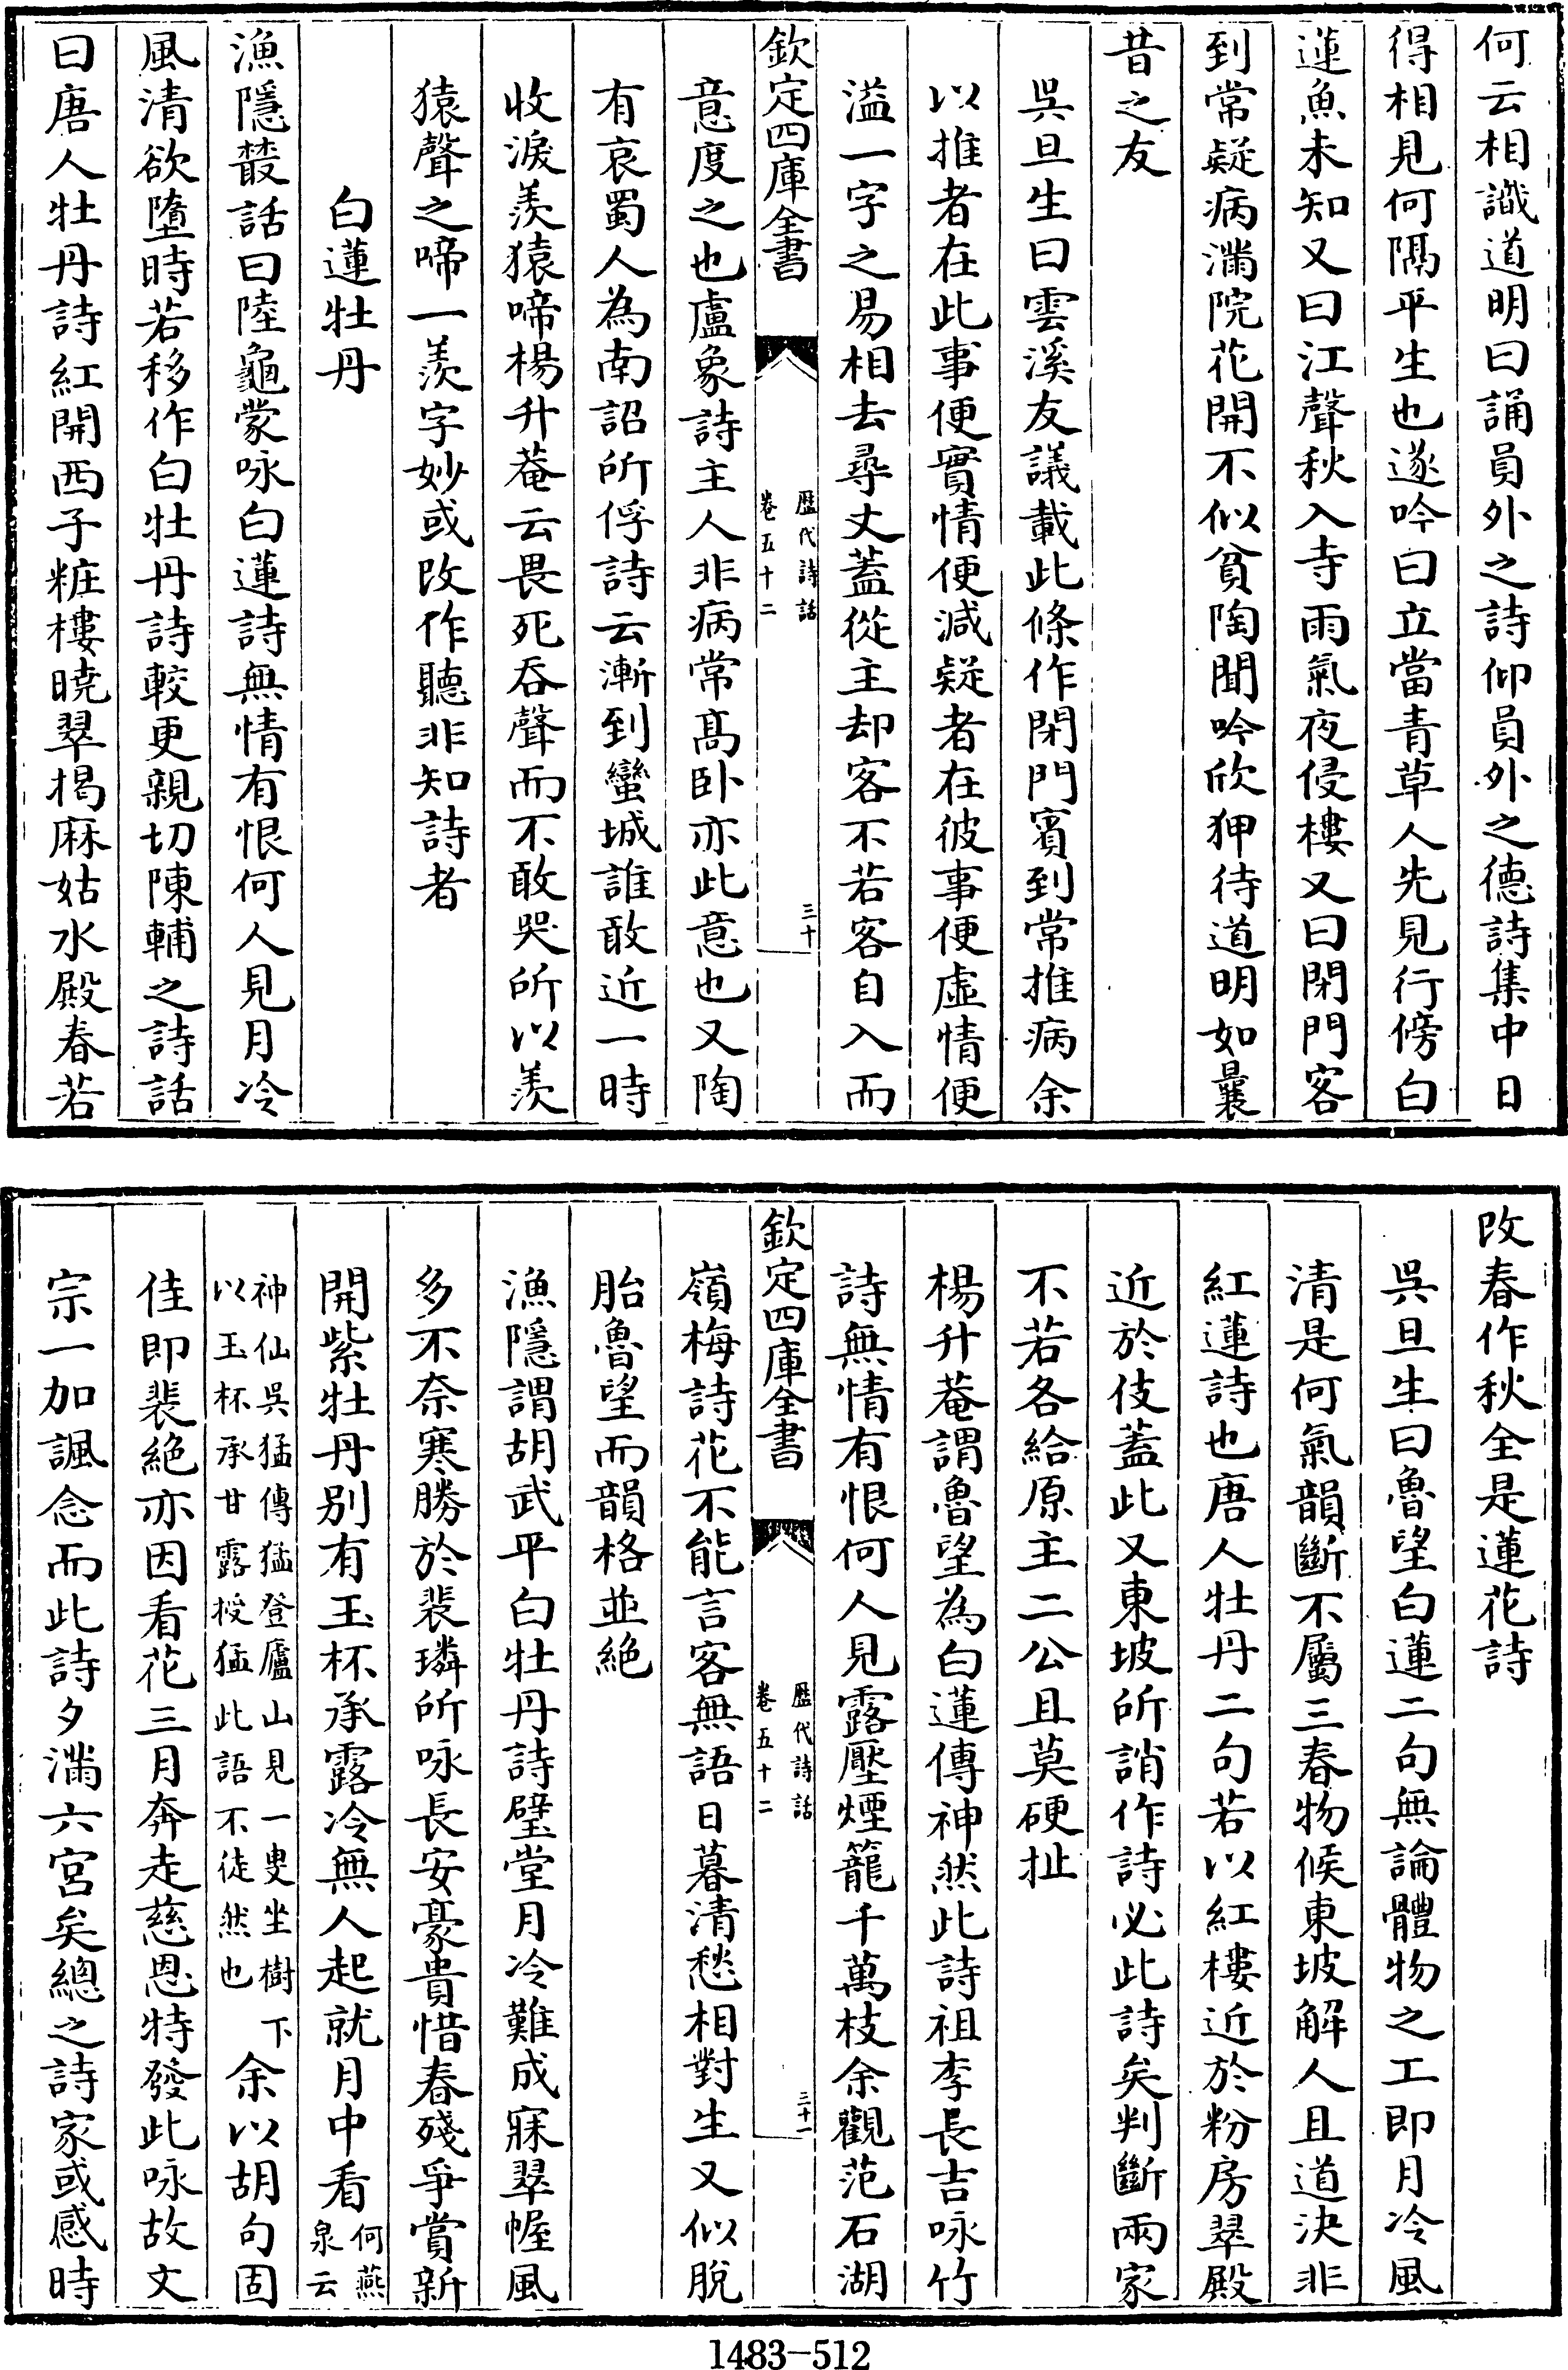 何云相識道明曰誦員外之詩仰員外之德詩集中日
得相見何隔平生也遂吟曰立當青草人先見行傍白
蓮魚未知又曰江聲秋入寺雨氣夜侵樓又曰閉門客
到常疑病滿院花開不似貧陶聞吟欣狎待道明如曩
昔之友
吳旦生曰雲溪友議載此條作閉門賓到常推病余
以推者在此事便實情便減疑者在彼事便虛情便
溢一字之易相去尋丈蓋從主却客不若客自入而
欽定四庫全書
歴代詩話
卷五十二
三十
意度之也盧象詩主人非病常髙卧亦此意也又陶
有哀蜀人為南詔所俘詩云漸到蠻城誰敢近一時
收淚羨猿啼楊升菴云畏死吞聲而不敢哭所以羨
猿聲之啼一羨字妙或改作聽非知詩者
白蓮牡丹
漁隱叢話曰陸龜蒙咏白蓮詩無情有恨何人見月冷
風清欲墮時若移作白牡丹詩較更親切陳輔之詩話
曰唐人牡丹詩紅開西子粧樓曉翠揭麻姑水殿春若
改春作秋全是蓮花詩
吳旦生曰魯望白蓮二句無論體物之工即月冷風
清是何氣韻斷不屬三春物候東坡解人且道決非
紅蓮詩也唐人牡丹二句若以紅樓近於粉房翠殿
近於伎蓋此又東坡所誚作詩必此詩矣判斷兩家
不若各給原主二公且莫硬扯
楊升菴謂魯望為白蓮傳神然此詩祖李長吉咏竹
詩無情有恨何人見露壓煙籠千萬枝余觀范石湖
欽定四庫全書
歴代詩話
卷五十二
三十一
嶺梅詩花不能言客無語日暮清愁相對生又似脫
胎魯望而韻格並絶
漁隱謂胡武平白牡丹詩璧堂月冷難成寐翠幄風
多不奈寒勝於裴璘所咏長安豪貴惜春殘爭賞新
開紫牡丹别有玉杯承露冷無人起就月中看何燕
泉云
神仙吳猛傳猛登廬山見一叟坐樹下
以玉杯承甘露授猛此語不徒然也余以胡句固
佳即裴絶亦因看花三月奔走慈恩特發此咏故文
宗一加諷念而此詩夕滿六宮矣總之詩家或感時
1483-512